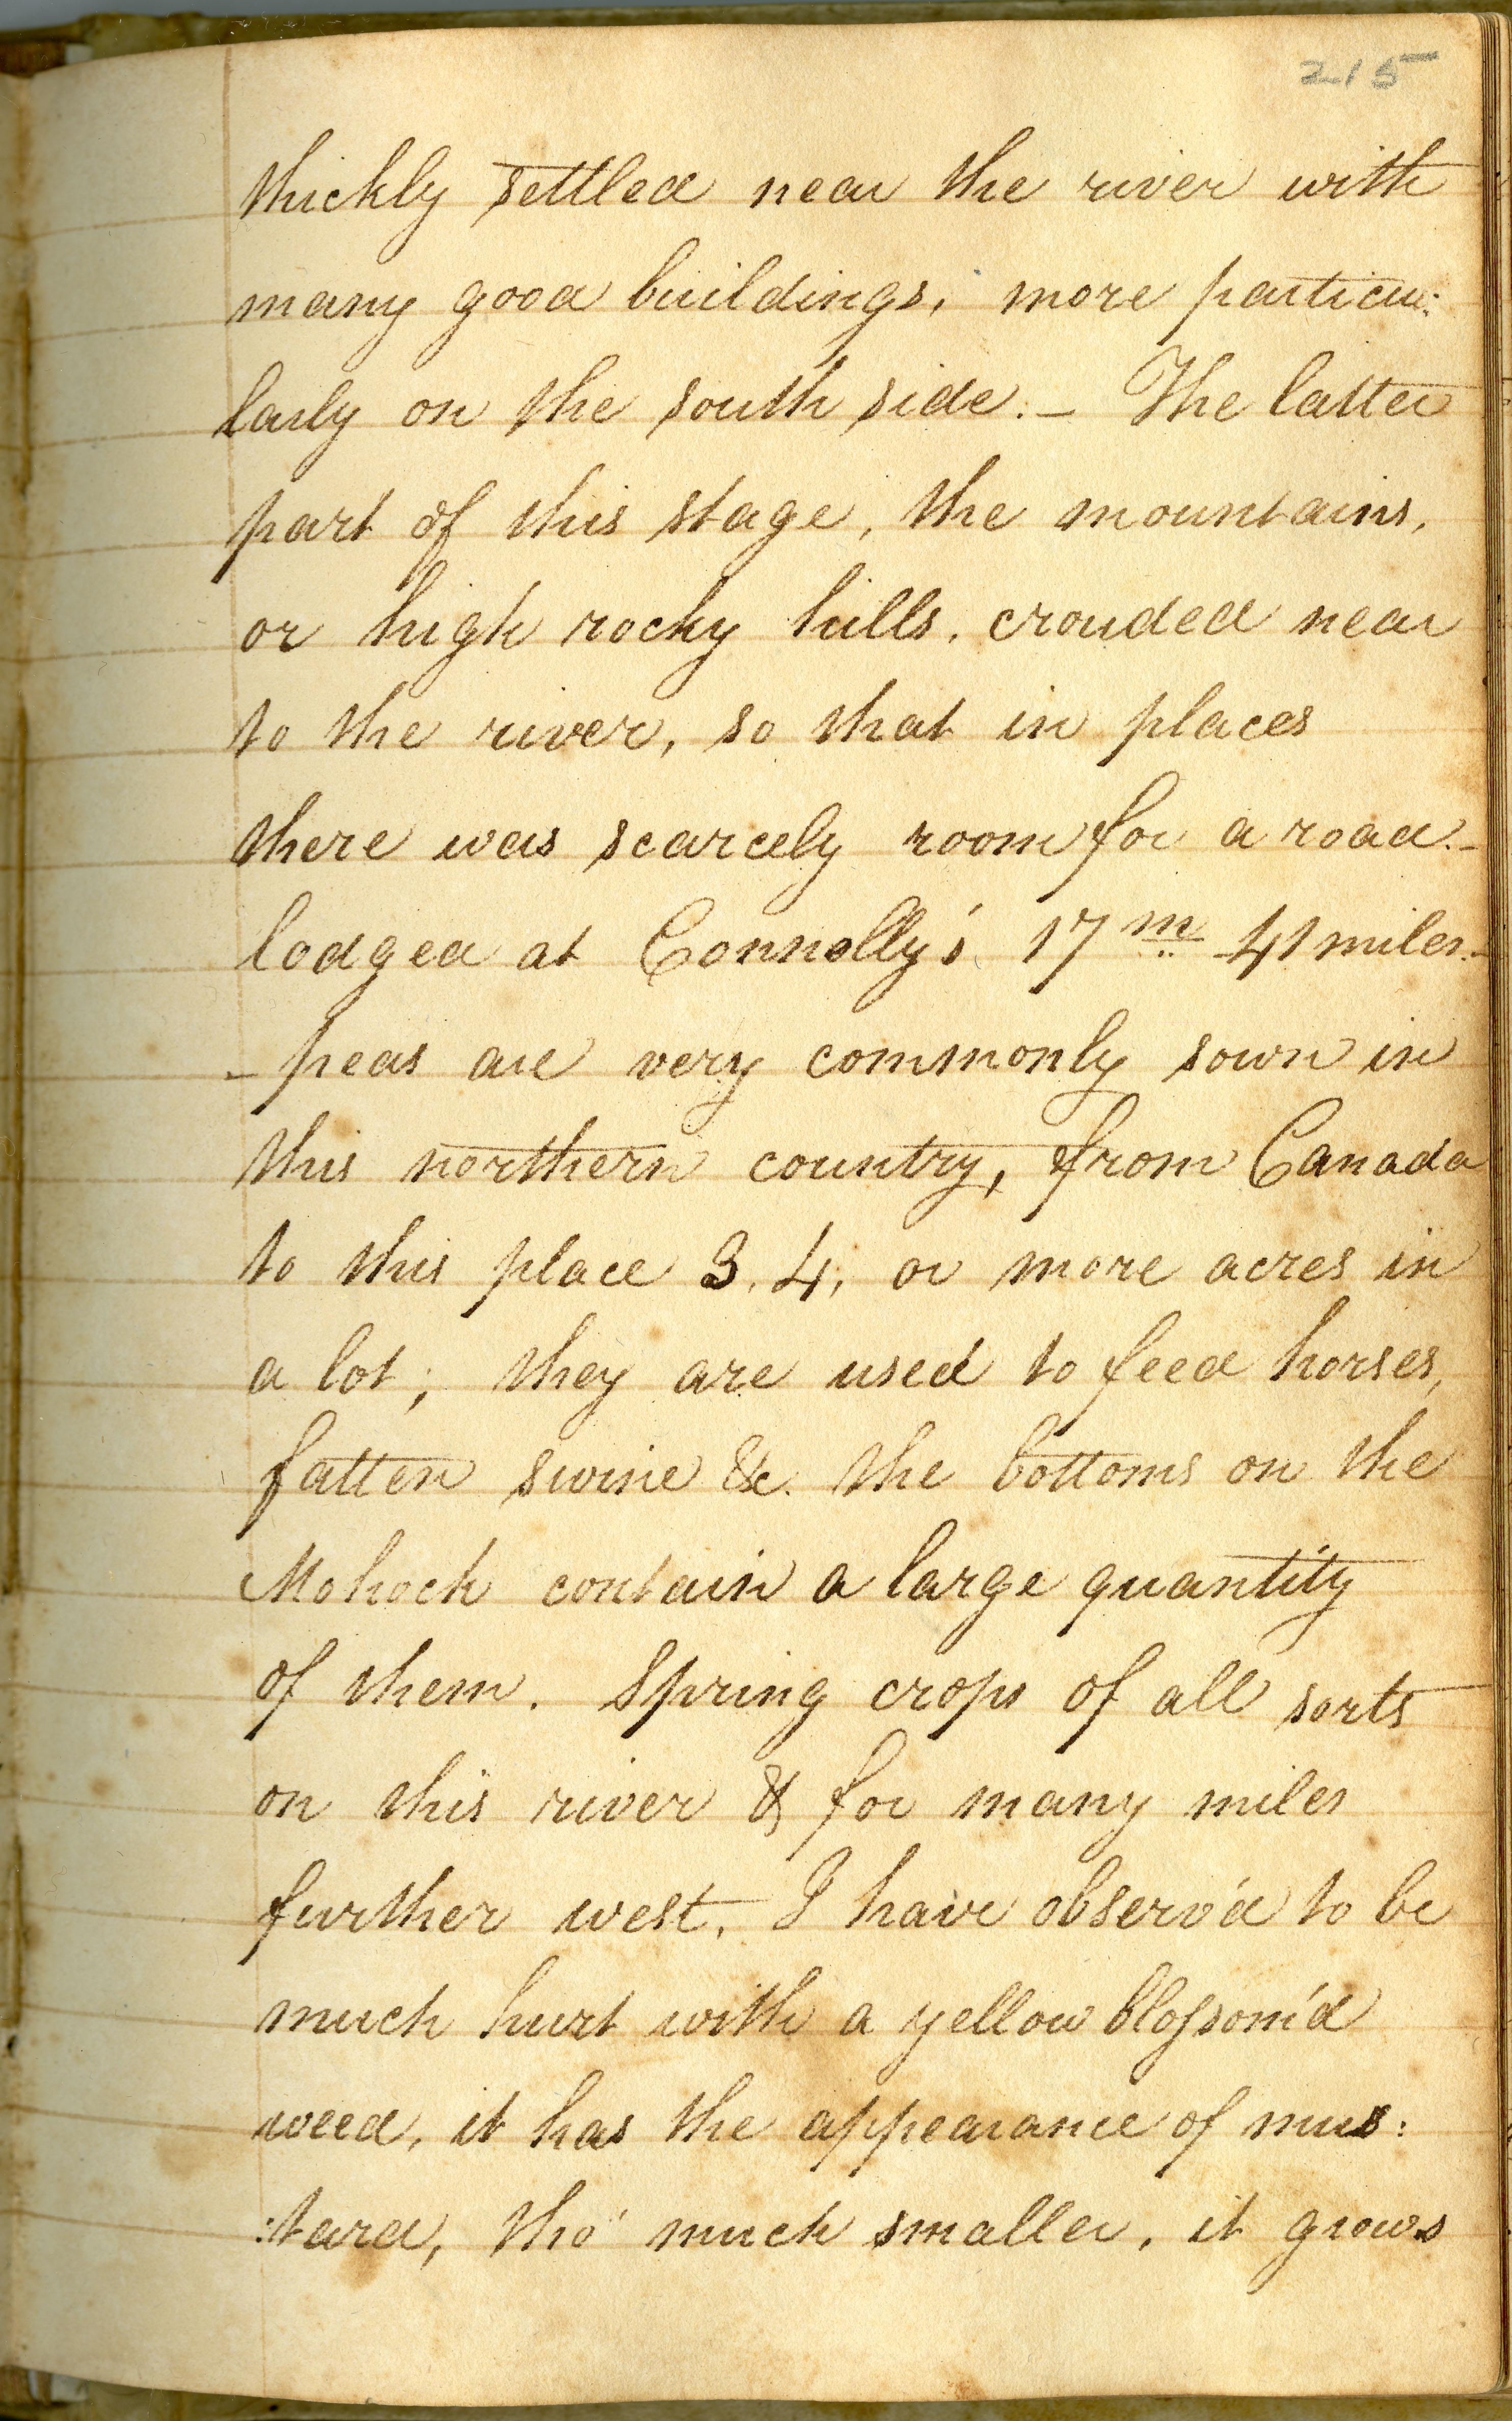 215
thickly settled near the river with
many good buildings, more particu:
larly on the south side. – The latter
part of this stage, the mountains,
or high rocky hills, crouded near
to the river, so that in places
there was scarcely room for a road. –
lodged at Connolly's 17m 41 miles. –
– peas are very commonly sown in
this northern country, from Canada
to this place 3, 4, or more acres in
a lot; they are used to feed horses,
fatten swine &c. the bottoms on the
Mohock contain a large quantity
of them. Spring crops of all sorts
on this river & for many miles
further west, I have observ'd to be
much hurt with a yellow blossom'd
weed, it has the appearance of mus:
:tard, tho' much smaller, it grows